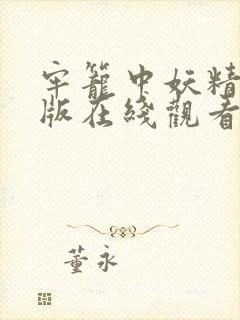 牢籠中妖精
版在綫觀看
董永